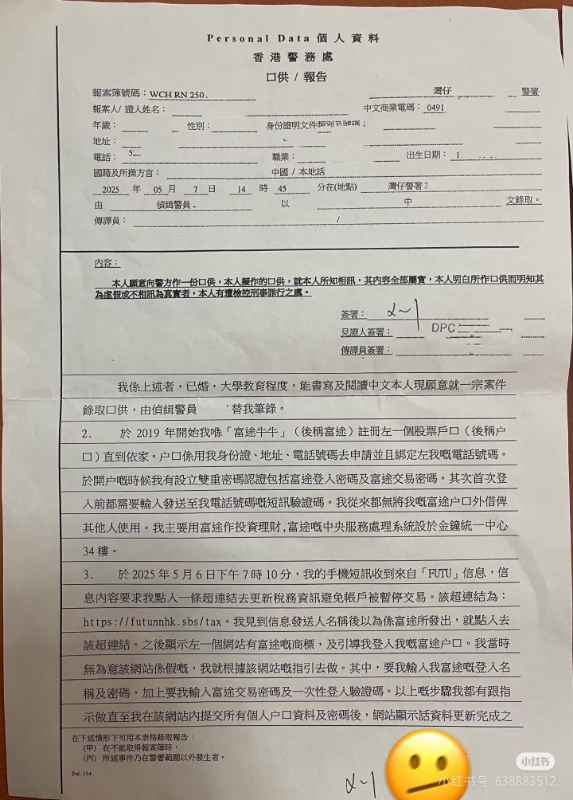 Personal Data 個人資料
香港警務處
口供 / 報告
報案簿號碼： WCH RN 250. 灣仔 警署
報案人/ 證人姓名： 中文商業電碼： 0491
年歲： 性別： 身份證明文件
地址：
電話： 5 職業： 出生日期： 1
國籍及所操方言： 中國 / 本地話
2025 年 05 月 7 日 14 時 45 分在(地點) 灣仔警署
由 偵緝警員 以 中 文錄取。
傳譯員： /
內容：
本人願意向警方作一份口供，本人擬作的口供，就本人所知相訊，其內容全部屬實，本人明白所作口供而明知其
為虛假或不相訊為真實者，本人有遭檢控刑事罪行之處。
簽署：
見證人簽署： DPC
傳譯員簽署：
我係上述者，已婚，大學教育程度，能書寫及閱讀中文本人現願意就一宗案件
錄取口供，由偵緝警員 替我筆錄。
2. 於 2019 年開始我喺「富途牛牛」（後稱富途）註冊左一個股票戶口（後稱户
口）直到依家。户口係用我身份證、地址、電話號碼去申請並且綁定左我嘅電話號碼。
於開户嘅時候我有設立雙重密碼認證包括富途登入密碼及富途交易密碼。其次首次登
入前都需要輸入發送至我電話號碼嘅短訊驗證碼。我從來都無將我嘅富途户口外借俾
其他人使用。我主要用富途作投資理財，富途嘅中央服務處理系統設於金鐘統一中心
34 樓。
3. 於 2025 年 5 月 6 日下午 7 時 10 分，我的手機短訊收到來自「FUTU」信息，信
息內容要求我點入一條超連結去更新稅務資訊避免帳戶被暫停交易。該超連結為：
https://futunnhk.sbs/tax。我見到信息發送人名稱後以為係富途所發出，就點入去
該超連結。之後顯示左一個網站有富途嘅商標，及引導我登入我嘅富途户口。我當時
無為意該網站係假嘅，我就根據該網站嘅指引去做。其中，要我輸入我富途嘅登入名
稱及密碼，加上要我輸入富途交易密碼及一次性登入驗證碼。以上嘅步驟我都有跟指
示做直至我在該網站內提交所有個人户口資料及密碼後，網站顯示話資料更新完成之
在下述情形下可用本表格錄取報告：
(甲) 在不能取得報案簿時，
(丙) 所述事件乃在警署範圍以外發生者。
Pol. 154
小红书
小红书号: 638883512